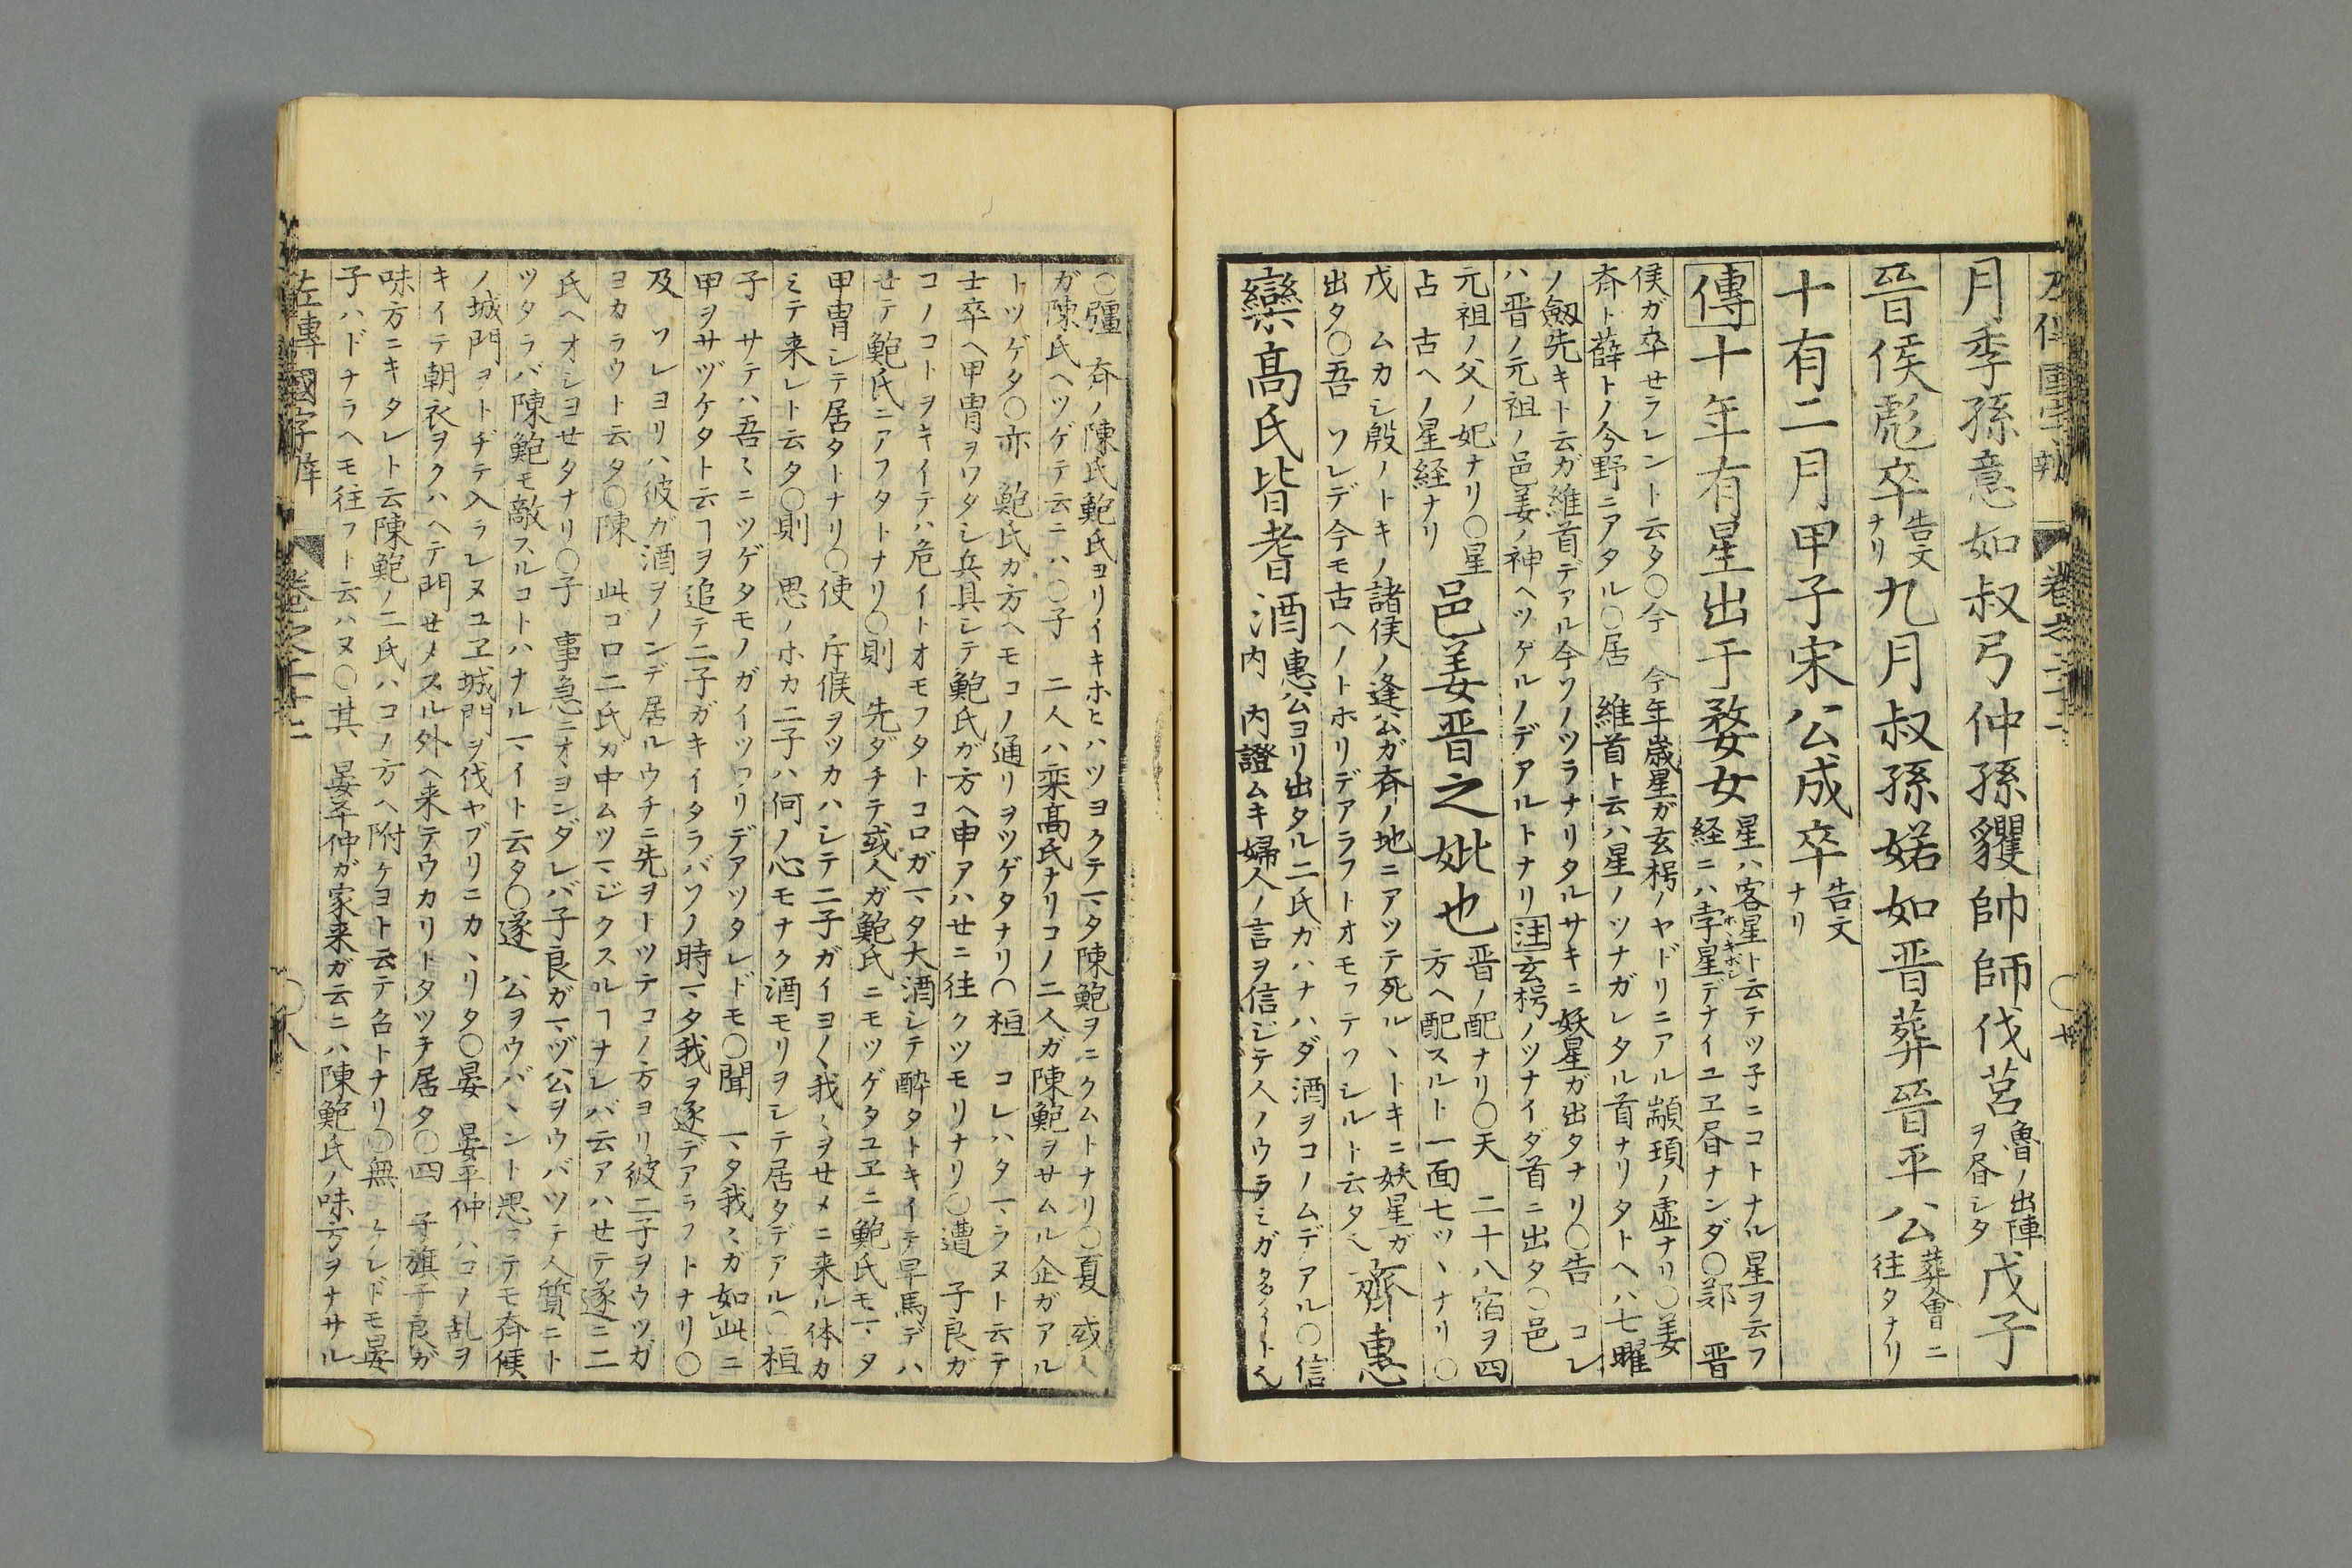 左傳國字辯 卷之二十二 〇廿
月季孫意如叔弓仲孫貜帥師伐莒魯ノ出陣ヲ昏シタ戊子
晉侯彪卒告文ナリ九月叔孫婼如晋葬晉平公葬會ニ往タナリ
十有二月甲子宋公成卒告文ナリ
傳十年有星出于婺女星ハ客星ト云テツ子ニコトナル星ヲ云フ
経ニハ孛星デナイユヱ昏ナンダ〇鄭 晋
侯ガ卒せラレント云タ〇今 今年歳星ガ玄枵ノヤドリニアル顓頊ノ虚ナリ〇姜
斉ト薛トノ分野ニアタル〇居 維首ト云ハ星ノツナガレタル首ナリタトヘハ七曜
ノ劔先キト云ガ維首デアル今ソノツラナリタルサキニ妖星ガ出タナリ〇告 コレ
ハ晋ノ元祖ノ邑姜ノ神ヘツゲルノデアルトナリ注玄枵ノツナイダ首ニ出タ〇邑
元祖ノ父ノ妃ナリ〇星
占 古ヘノ星経ナリ
邑姜晋之妣也晋ノ配ナリ〇天 二十八宿ヲ四
方ヘ配スルト一面七ツヽナリ〇
戊 ムカシ殷ノトキノ諸侯ノ逢公ガ斉ノ地ニアツテ死ルヽトキニ妖星ガ
出タ〇吾 ソレデ今モ古ヘノトホリデアラフトオモフテソシルト云タ
齊惠
欒高氏皆耆酒惠公ヨリ出タル二氏ガハナハダ酒ヲコノムデアル〇信
内 内證ムキ婦人ノ言ヲ信ジテ人ノウラミガ多イト也
〇彊 斉ノ陳氏鮑氏ヨリイキホヒハツヨクテマタ陳鮑ヲニクムトナリ〇夏 或人
ガ陳氏ヘツゲテ云ニハ〇子 二人ハ栾高氏ナリコノ二人ガ陳鮑ヲサムル企ガアル
トツゲタ〇亦 鮑氏ガ方ヘモコノ通リヲツゲタナリ〇桓 コレハタマラヌト云テ
士卒ヘ甲冑ヲワタシ兵具シテ鮑氏ガ方ヘ申アハせニ往クツモリナリ〇遭 子良ガ
コノコトヲキイテハ危イトオモフタトコロガマタ大酒シテ酔タトキイテ早馬デハ
せテ鮑氏ニアフタトナリ〇則 先ダチテ或人ガ鮑氏ニモツゲタユヱニ鮑氏モマタ
甲冑シテ居タトナリ〇使 斥候ヲツカハシテ二子ガイヨ〱我〻ヲせメニ来ル体カ
ミテ来レト云タ〇則 思ノホカ二子ハ何ノ心モナク酒モリヲシテ居タデアル〇桓
子 サテハ吾〻ニツゲタモノガイツワリデアツタレドモ〇聞 マタ我〻ガ如此ニ
甲ヲサヅケタト云ヿヲ追テ二子ガキイタラバソノ時マタ我ヲ逐デアラフトナリ〇
及 ソレヨリハ彼ガ酒ヲノンデ居ルウチニ先ヲトツテコノ方ヨリ彼二子ヲウツガ
ヨカラウト云タ〇陳 此ゴロ二氏ガ中ムツマジクスルヿナレバ云アハせテ遂ニ二
氏ヘオシヨせタナリ〇子 事急ニオヨンダレバ子良ガマヅ公ヲウバツテ人質ニト
ツタラバ陳鮑モ敵スルコトハナルマイト云タ〇遂 公ヲウバヽント思フテモ斉侯
ノ城門ヲトヂテ入ラレヌユヱ城門ヲ伐ヤブリニカヽリタ〇晏 晏平仲ハコノ乱ヲ
キイテ朝衣ヲクハヘテ門せメスル外ヘ来テウカリトタツテ居タ〇四 子旗子良ガ
味方ニキタレト云陳鮑ノ二氏ハコノ方ヘ附ケヨト云テ召トナリ〇無 ケレドモ晏
子ハドナラヘモ往フト云ハヌ〇其 晏平仲ガ家来ガ云ニハ陳鮑氏ノ味方ヲナサル
左傳國字辯 卷之二十二 〇八